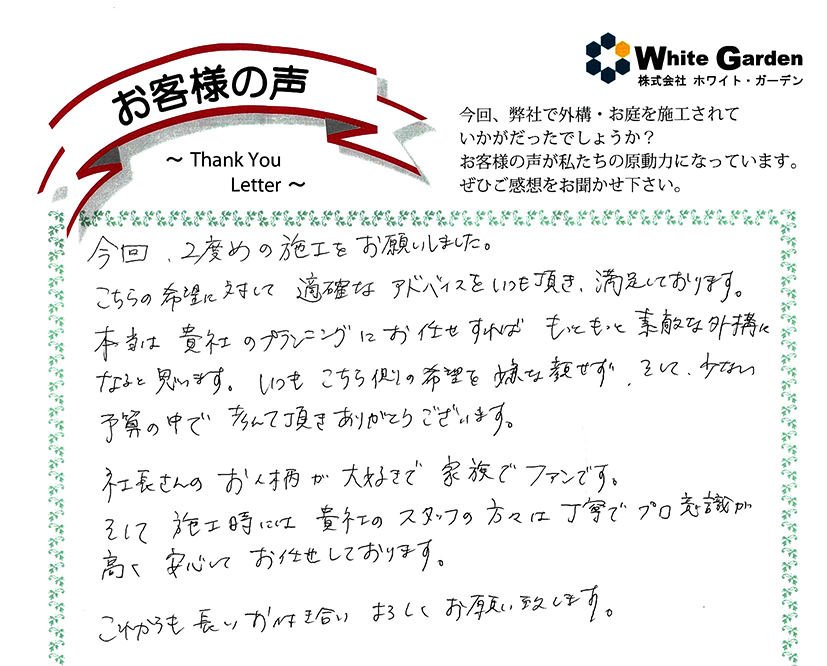 お客様の声
～ Thank You
Letter ～
White Garden
株式会社 ホワイト・ガーデン
今回、弊社で外構・お庭を施工されて
いかがだったでしょうか？
お客様の声が私たちの原動力になっています。
ぜひご感想をお聞かせ下さい。
今回、2度めの施工をお願いしました。
こちらの希望に対して 適確な アドバイスをいつも頂き、満足しております。
本当は 貴社 のプランニングに お任せすれば もっともっと 素敵な外構に
なると思います。いつも こちら側の希望を 嫌な顔せず、そして、少ない
予算の中で 考えて頂きありがとうございます。
社長さんの お人柄が 大好きで 家族で ファンです。
そして 施工時には 貴社の スタッフの 方々は 丁寧で プロ意識が
高く 安心して お任せしております。
これからも 長い お付き合い よろしく お願い致します。